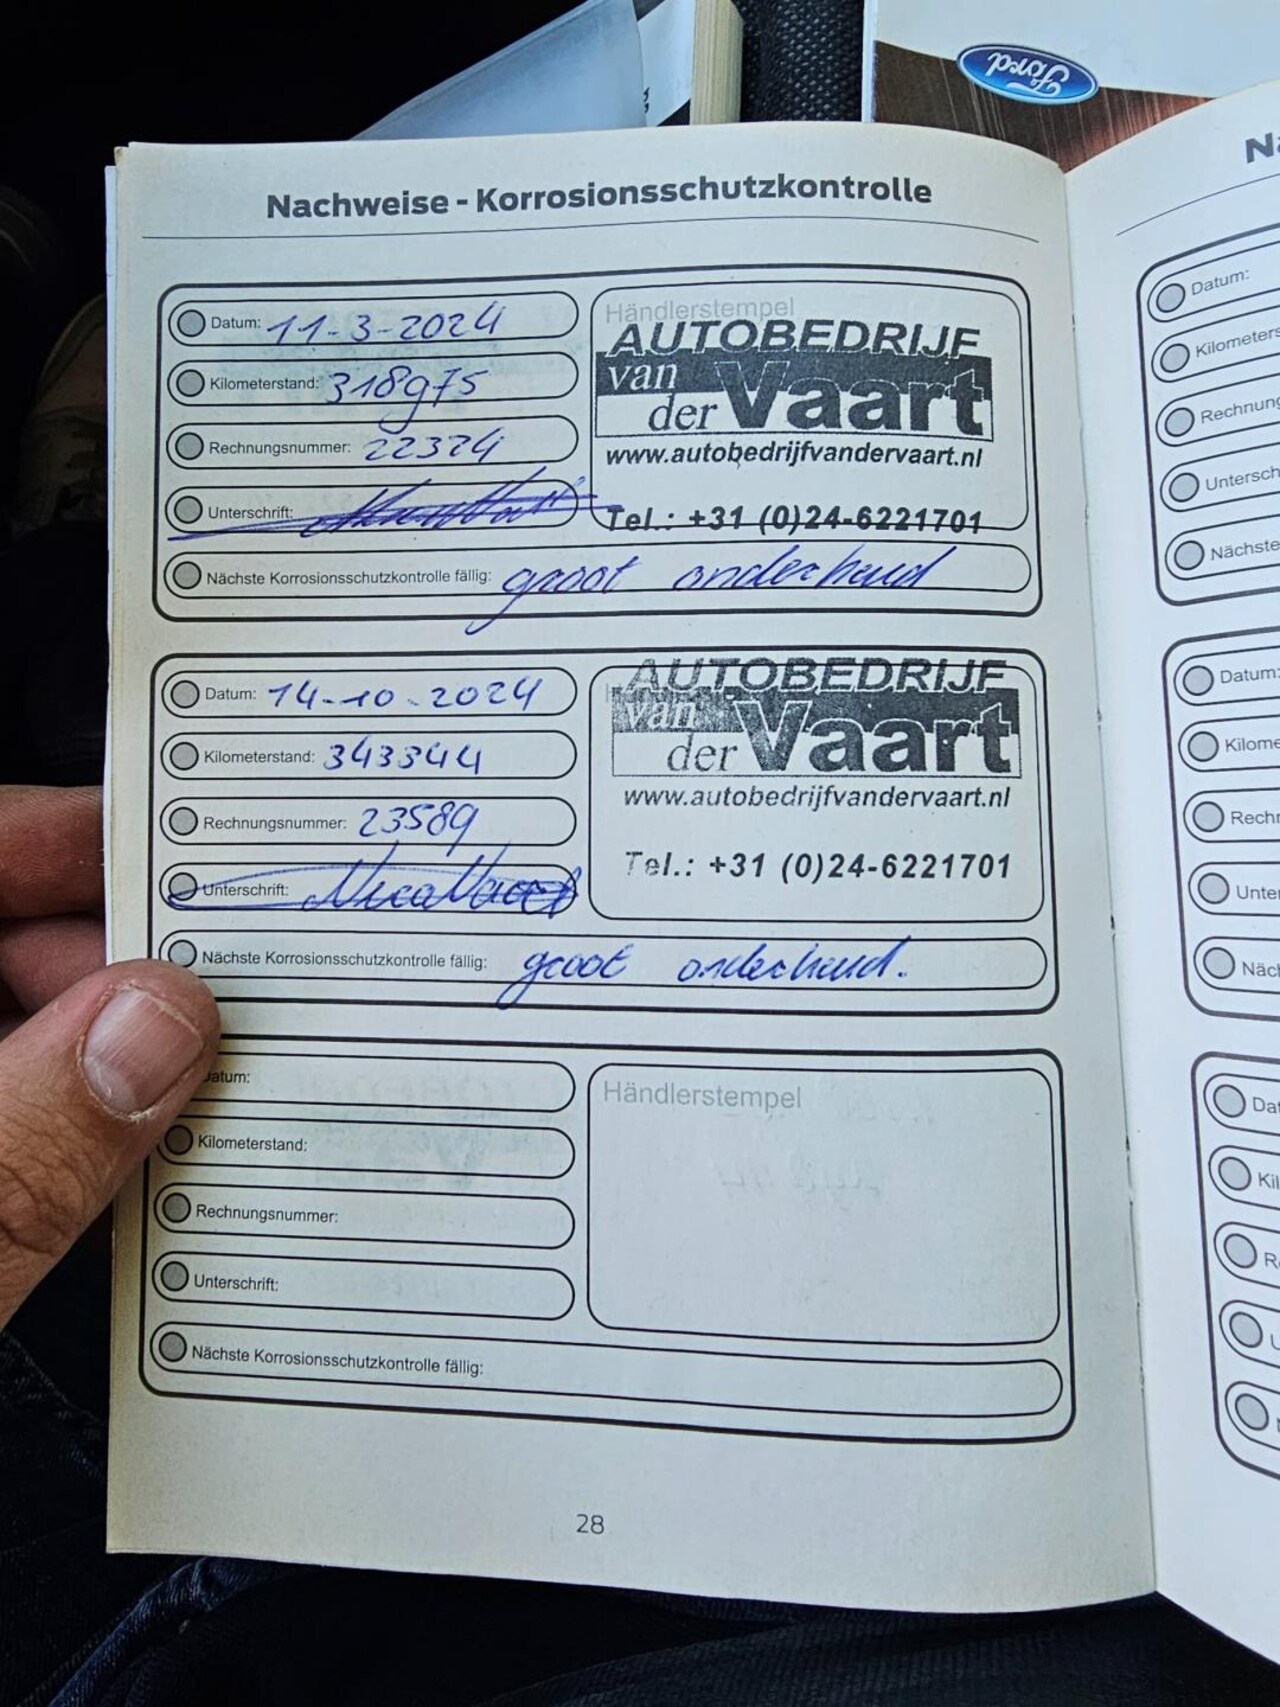 Ford
Nachweise - Korrosionsschutzkontrolle
Datum: 11-3-2024
Kilometerstand: 318975
Rechnungsnummer: 22324
Unterschrift:
Händlerstempel
AUTOBEDRIJF
van
der Vaart
www.autobedrijfvandervaart.nl
Tel.: +31 (0)24-6221701
Nächste Korrosionsschutzkontrolle fällig: groot onderhoud
Datum: 14-10-2024
Kilometerstand: 343344
Rechnungsnummer: 23589
Unterschrift:
AUTOBEDRIJF
van
der Vaart
www.autobedrijfvandervaart.nl
Tel.: +31 (0)24-6221701
Nächste Korrosionsschutzkontrolle fällig: groot onderhoud.
Datum:
Kilometerstand:
Rechnungsnummer:
Unterschrift:
Händlerstempel
Nächste Korrosionsschutzkontrolle fällig:
28
Datum:
Kilometers
Rechnung
Untersch
Nächste
Datum:
Kilome
Rechn
Unter
Näch
Dat
Kil